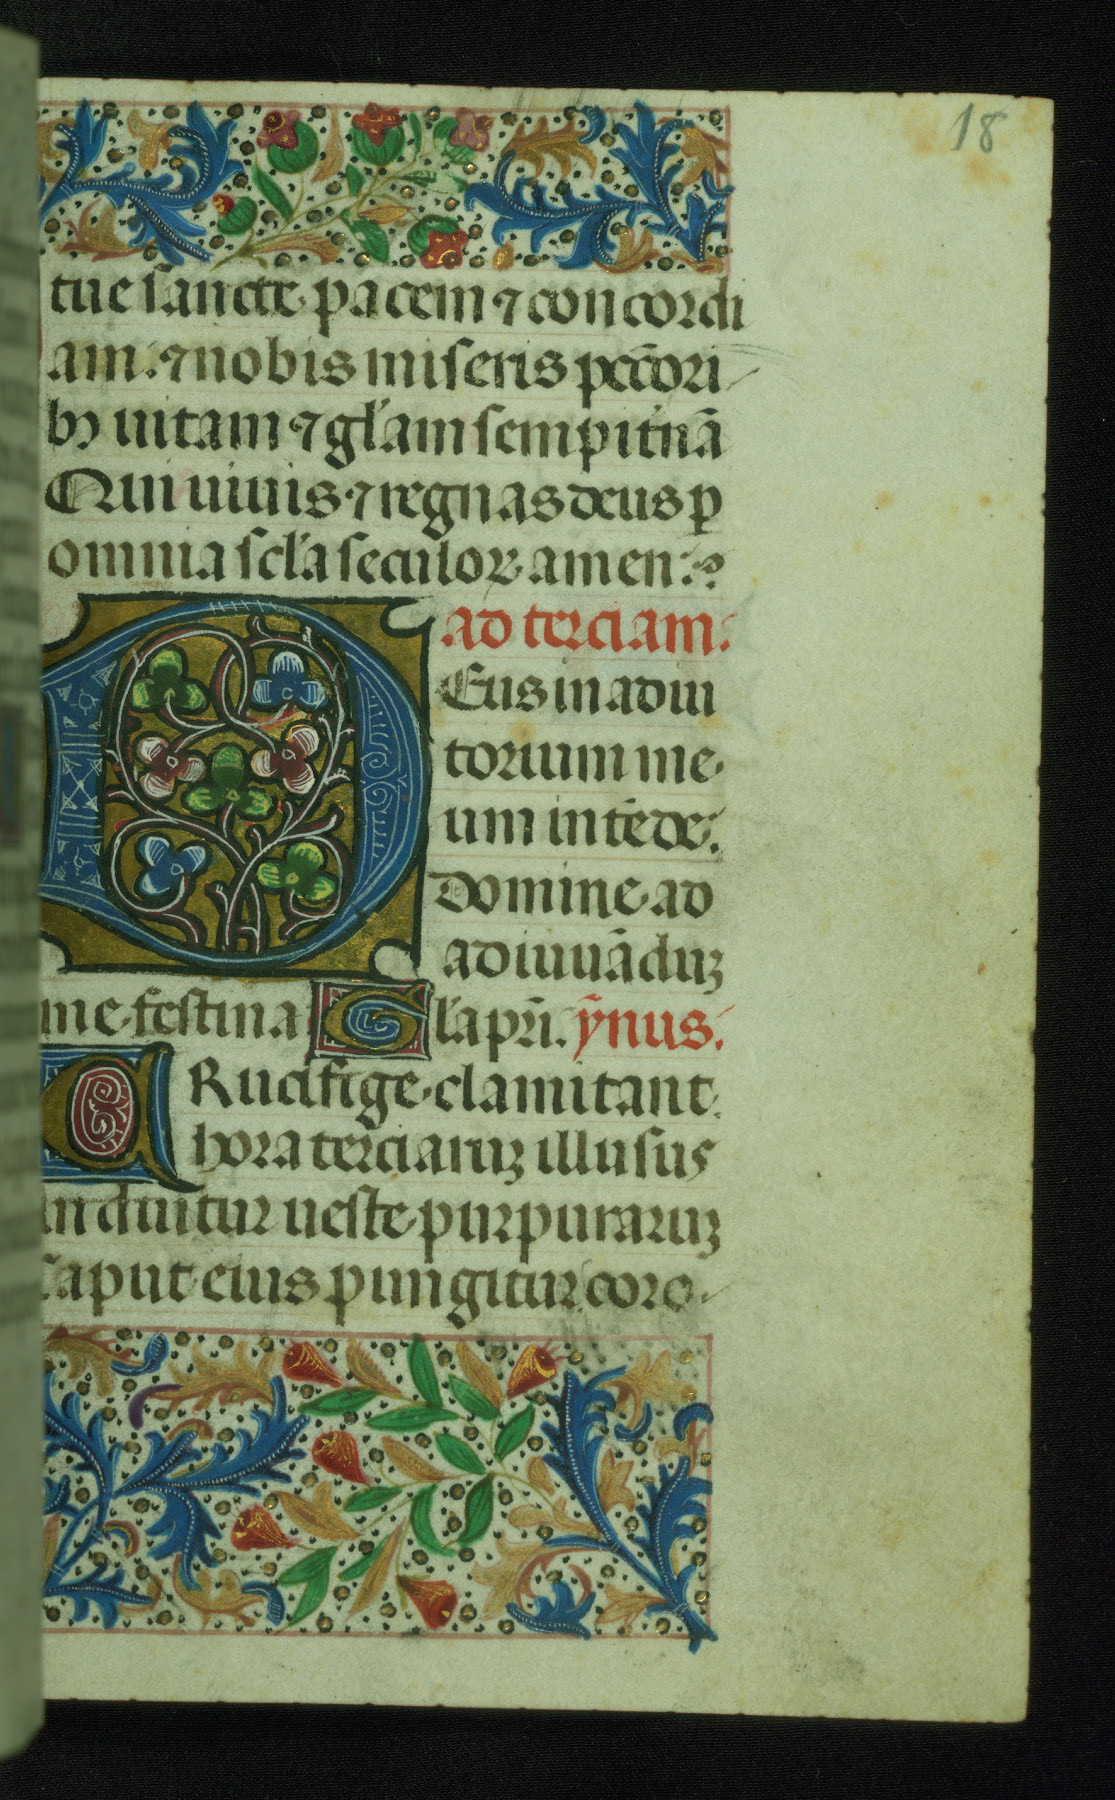 18
tue sancte pacem ⁊ concordi
am: ⁊ nobis miseris pctōri
bꝫ uitam ⁊ gl'am sempit'nā
Qui uiuis ⁊ regnas deus ꝑ
omnia sc'la seculoꝝ amen:
ad terciam.
Deus in adiu
torium me
um intēde:
Domine ad
adiuuāduꝫ
me festina Gl'a pr̄i. ȳnus.
CRucifige clamitant
hora terciaruꝫ illusus
induitur ueste purpuraruꝫ
Caput eius pungitur coro